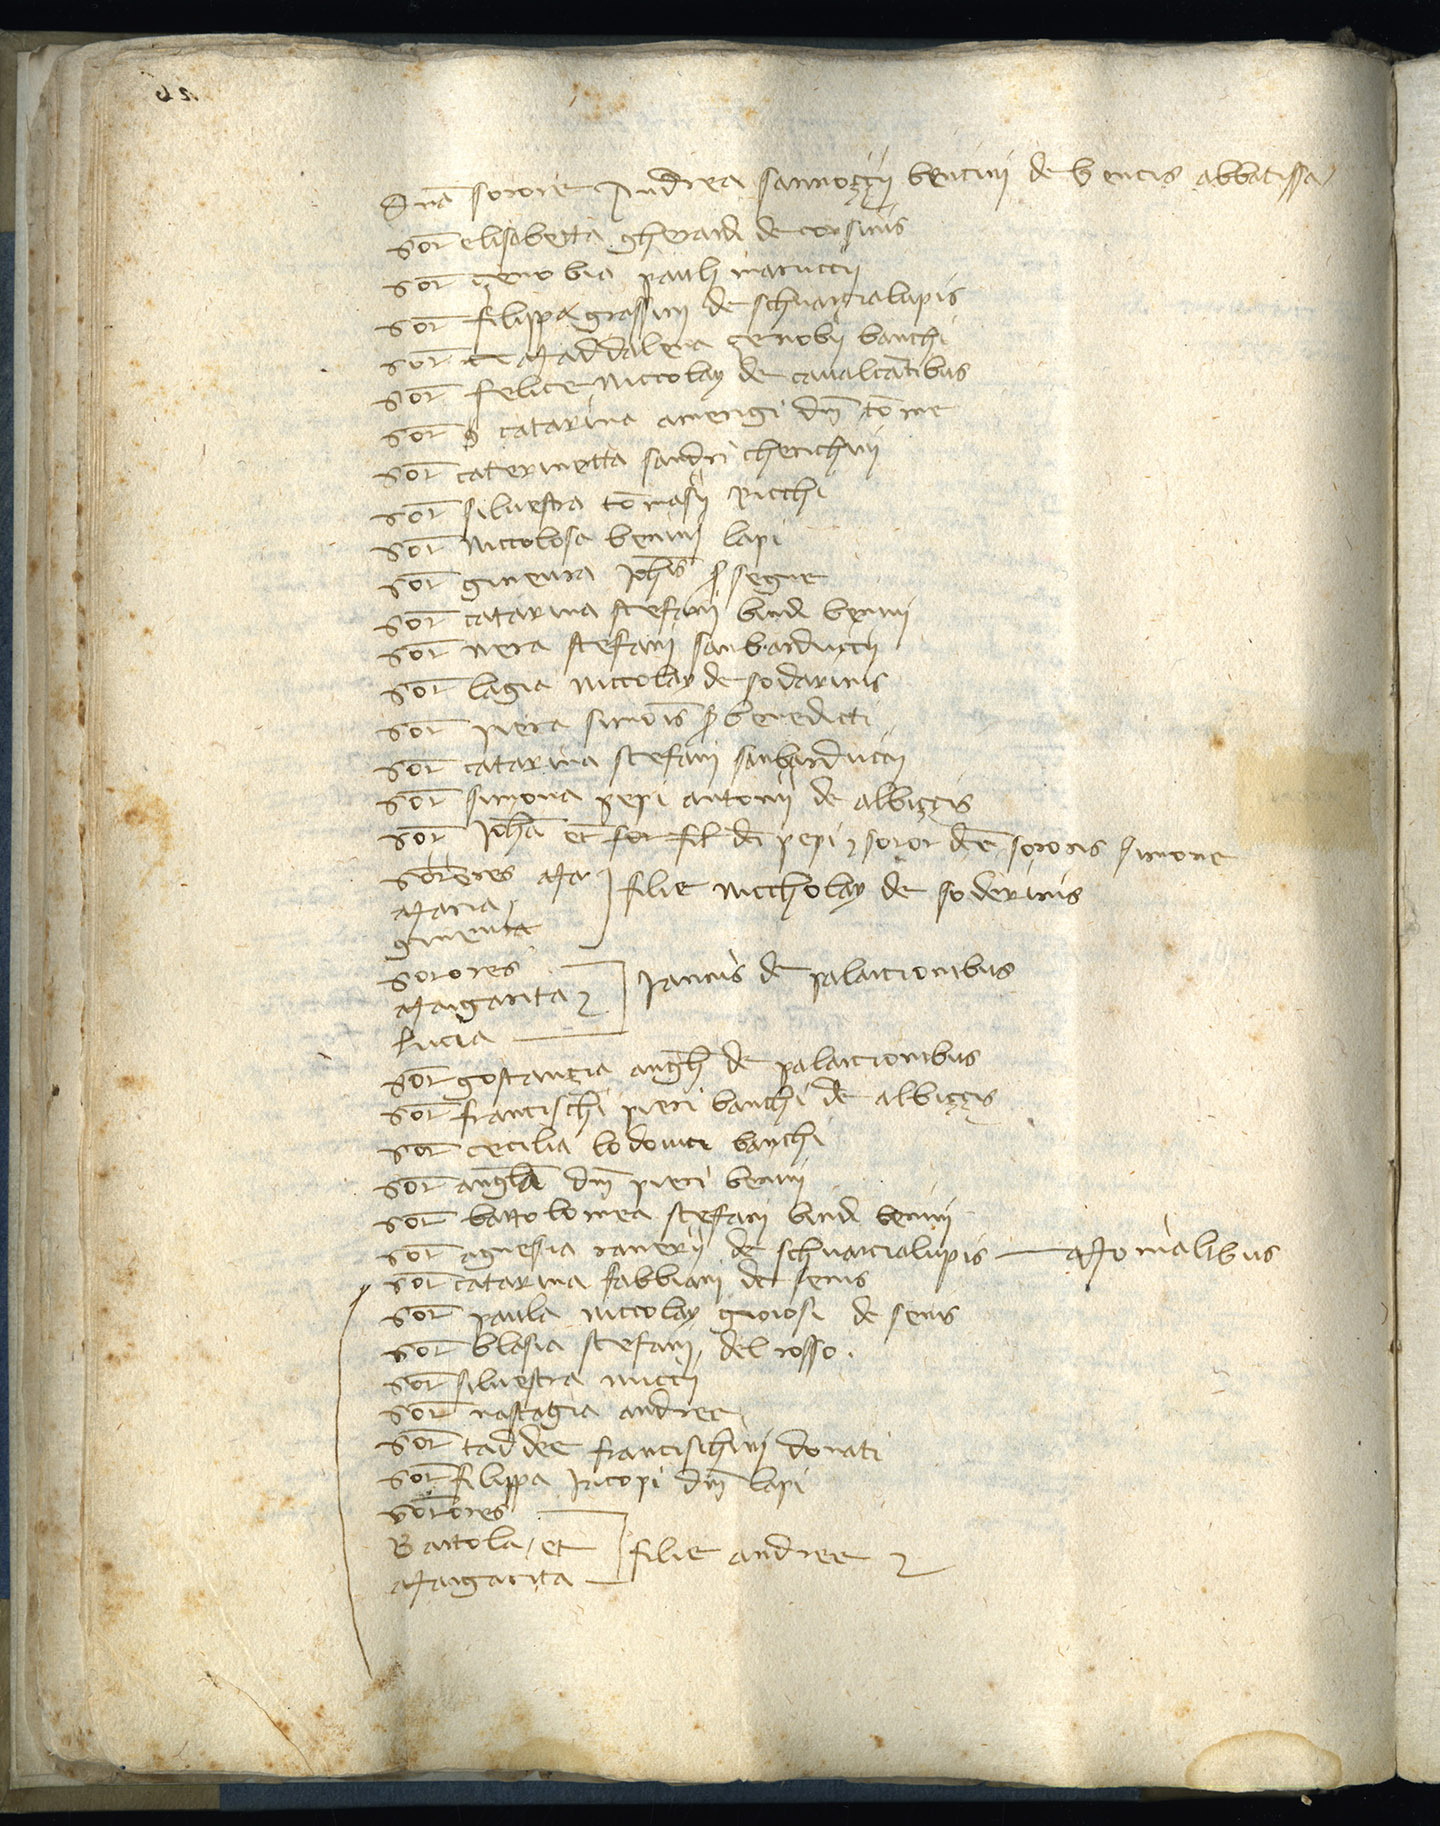 Dna sorore Andrea sannoççij bencini de bencis abbatissa
Sor elisabetta gherardi de corsinis
Sor çenobia pauli maruccij
Sor filippa grassini de schuarcialupis
Sor Maddalena çenobij banchi
Sor felice niccolay de caualcatibus
Sor catarina amerigi dni tome
Sor caterinetta sandri cherichini
Sor siluestra tomasij ricchi
Sor niccolosa benini lapi
Sor gineura Johis segne
Sor catarina stefani bindi benini
Sor nera stefani sanbarduccij
Sor lagia niccolay de sodarinis
Sor piera simois benedicti
Sor catarina stefani sanbarduccij
Sor simona pepi antonij de albiççis
Sor Joha et sor fil di pepi soror dce sororis simone
Sorores
Maria
gineura
filie niccholay de soderinis
Sorores
Margarita
Lucia
de palarcionibus
Sor gostançia angli de palarcionibus
Sor francischi pieri banchi de albiççis
Sor cecilia lodouici banchi
Sor angla dni pieri benini
Sor bartolomea stefani bindi benini
Sor agnesia ranerij de schuarcialupis — Monialibus
Sor catarina fabbiani de senis
Sor paula niccolay gioiosi de senis
Sor blasia stefani del rosso.
Sor siluestra nuccij
Sor nastagia andree
Sor taddee francischini donati
Sor filippa Jacopi dni lapi
Sorores
Bartola et
Margarita
filie andree